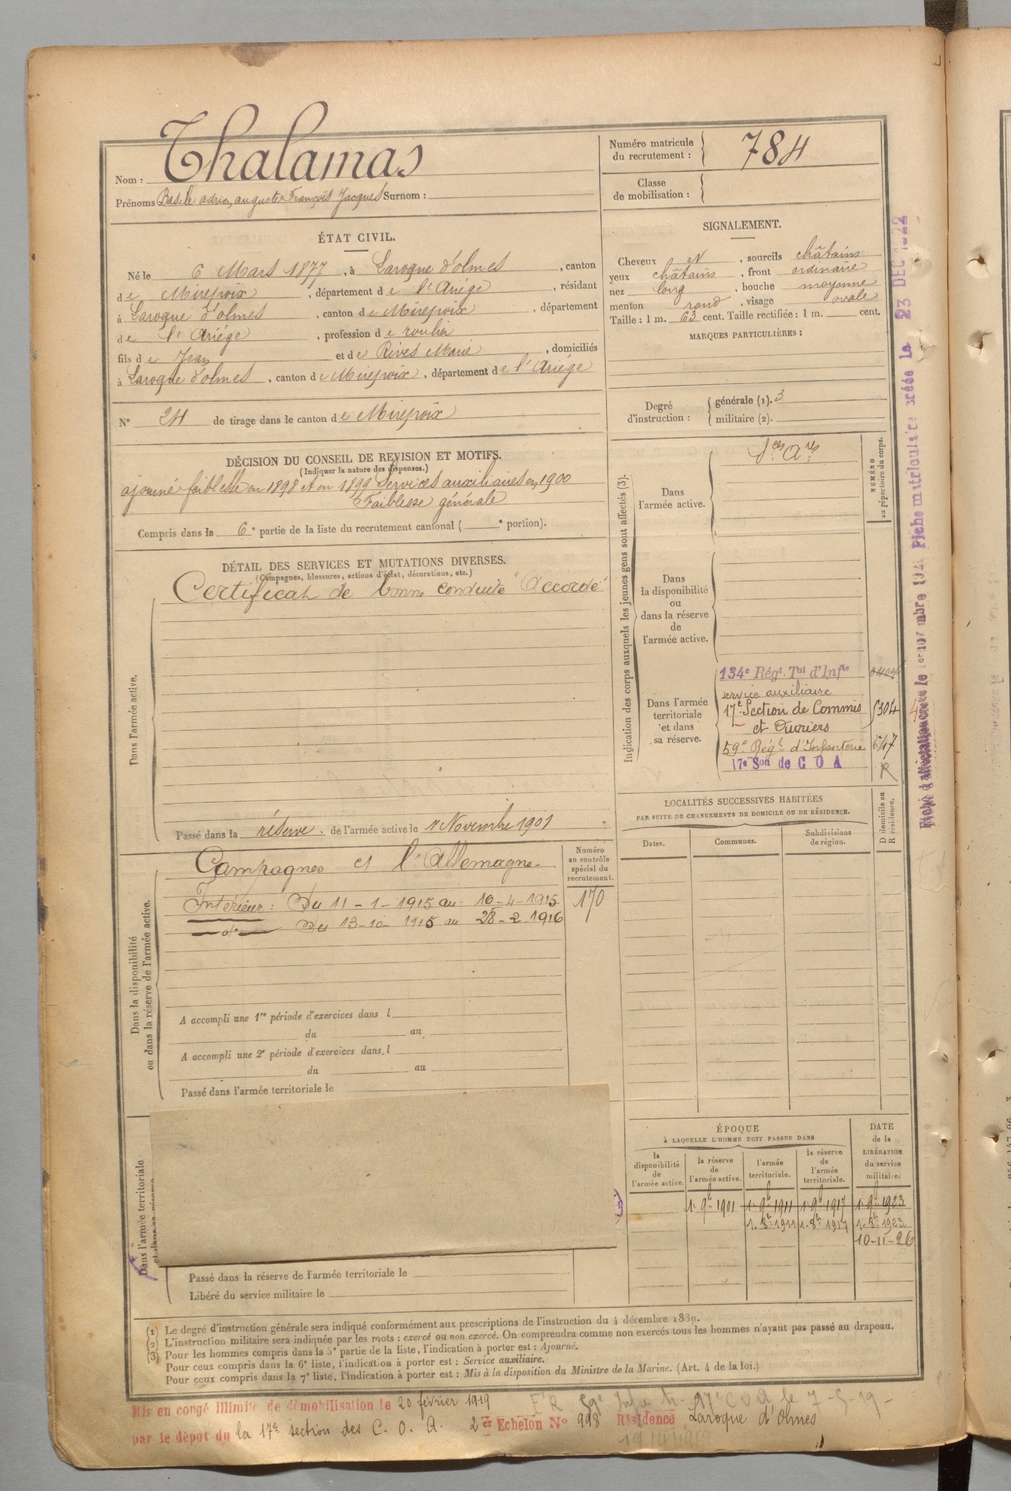 Thalamas
Nom :
Prénoms Basile adrien auguste François Jacques Surnom :
Numéro matricule
du recrutement :
784
Classe
de mobilisation :
ÉTAT CIVIL.
Né le 6 Mars 1877, à Laroque d'olmes, canton
de Mirepoix, département de l'Ariége, résidant
à Laroque d'olmes, canton de Mirepoix, département
de l'Ariége, profession de roulier
fils de Jean et de Rives Marie, domiciliés
à Laroque d'olmes, canton de Mirepoix, département de l'Ariége
N° 24 de tirage dans le canton de Mirepoix
SIGNALEMENT.
Cheveux et, sourcils châtains
yeux châtains, front ordinaire
nez long, bouche moyenne
menton rond, visage ovale
Taille : 1 m. 63 cent. Taille rectifiée : 1 m. cent.
MARQUES PARTICULIÈRES :
Degré
d'instruction :
générale (1). 3
militaire (2).
DÉCISION DU CONSEIL DE REVISION ET MOTIFS.
(Indiquer la nature des dispenses.)
ajourné faiblesse en 1898 et en 1899 Services auxiliaires en 1900
Faiblesse générale
Compris dans la 6e partie de la liste du recrutement cantonal ( e portion).
DÉTAIL DES SERVICES ET MUTATIONS DIVERSES.
(Campagnes, blessures, actions d'éclat, décorations, etc.)
Certificat de bonne conduite "Accordé"
Dans l'armée active.
Passé dans la réserve. de l'armée active le 1er Novembre 1901
Indication des corps auxquels les jeunes gens sont affectés (3).
NUMÉRO
au répertoire du corps.
Dans
l'armée active.
Sces Ares
Dans
la disponibilité
ou
dans la réserve
de
l'armée active.
Dans l'armée
territoriale
et dans
sa réserve.
134e Régt Tal d'Infie
service auxiliaire
17e Section de Commis
et Ouvriers
5304
59e Régt d'Infanterie
17e Son de C O A
R
Fiche matriculaire créée le 23 DEC 1922
LOCALITÉS SUCCESSIVES HABITÉES
PAR SUITE DE CHANGEMENTS DE DOMICILE OU DE RÉSIDENCE.
Dates.
Communes.
Subdivisions
de région.
D domicile ou
R résidence.
Numéro
au contrôle
spécial du
recrutement.
170
Dans la disponibilité
ou dans la réserve de l'armée active.
Campagnes et l'Allemagne
Intérieur : Du 11-1-1915 au 10-4-1915
do Du 13-10-1915 au 28-2-1916
A accompli une 1re période d'exercices dans l
du au
A accompli une 2e période d'exercices dans l
du au
Passé dans l'armée territoriale le
Dans l'armée territoriale
ÉPOQUE
À LAQUELLE L'HOMME DOIT PASSER DANS
la
disponibilité
de
l'armée active.
la réserve
de
l'armée active.
l'armée
territoriale.
la réserve
de
l'armée
territoriale.
DATE
de la
LIBÉRATION
du service
militaire.
1. 9bre 1901 1. 9bre 1911 1. 9bre 1917 1. 9bre 1923
1. 8bre 1911 1. 8bre 1917 1. 8bre 1923
10-11-26
Passé dans la réserve de l'armée territoriale le
Libéré du service militaire le
(1) Le degré d'instruction générale sera indiqué conformément aux prescriptions de l'instruction du 4 décembre 1889.
(2) L'instruction militaire sera indiquée par les mots : exercé ou non exercé. On comprendra comme non exercés tous les hommes n'ayant pas passé au drapeau.
(3) Pour les hommes compris dans la 5e partie de la liste, l'indication à porter est : Ajourné.
Pour ceux compris dans la 6e liste, l'indication à porter est : Service auxiliaire.
Pour ceux compris dans la 7e liste, l'indication à porter est : Mis à la disposition du Ministre de la Marine. (Art. 4 de la loi.)
Mis en congé illimité de démobilisation le 20 février 1919
par le dépôt du la 17e section des C. O. A. 2er Echelon N° 998 Résidence Laroque d'Olmes